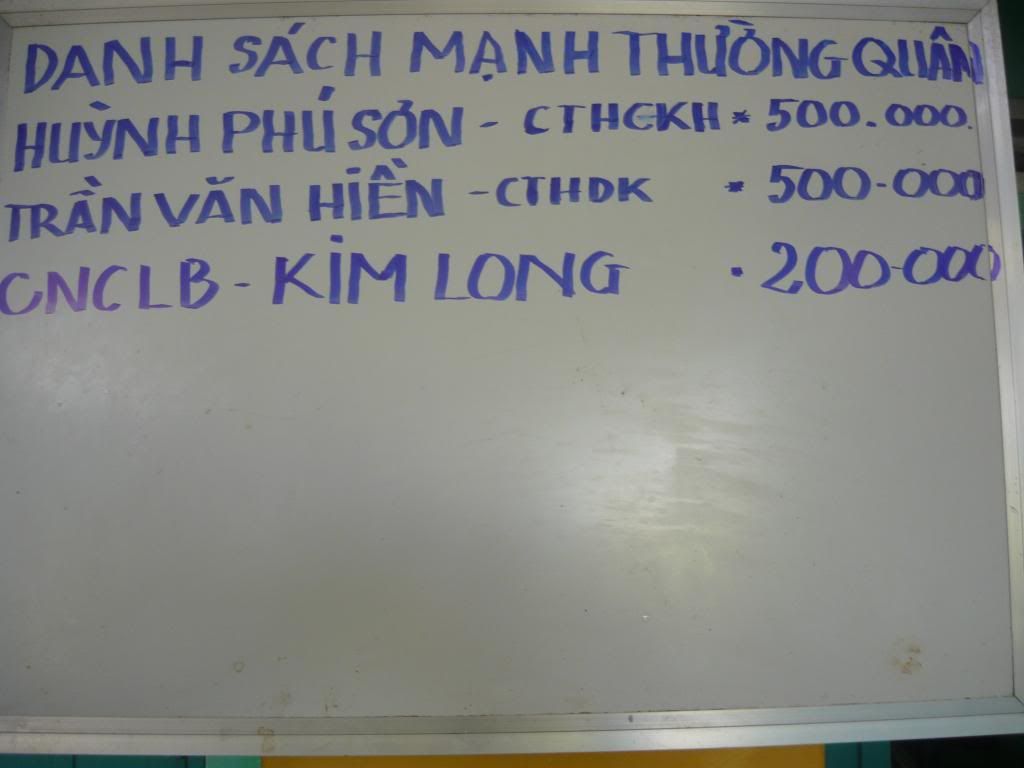 DANH SÁCH MẠNH THƯỜNG QUÂN
HUỲNH PHÚ SƠN - CTHGKH * 500.000.
TRẦN VĂN HIỀN - CTHDK * 500-000
CNCLB - KIM LONG . 200-000